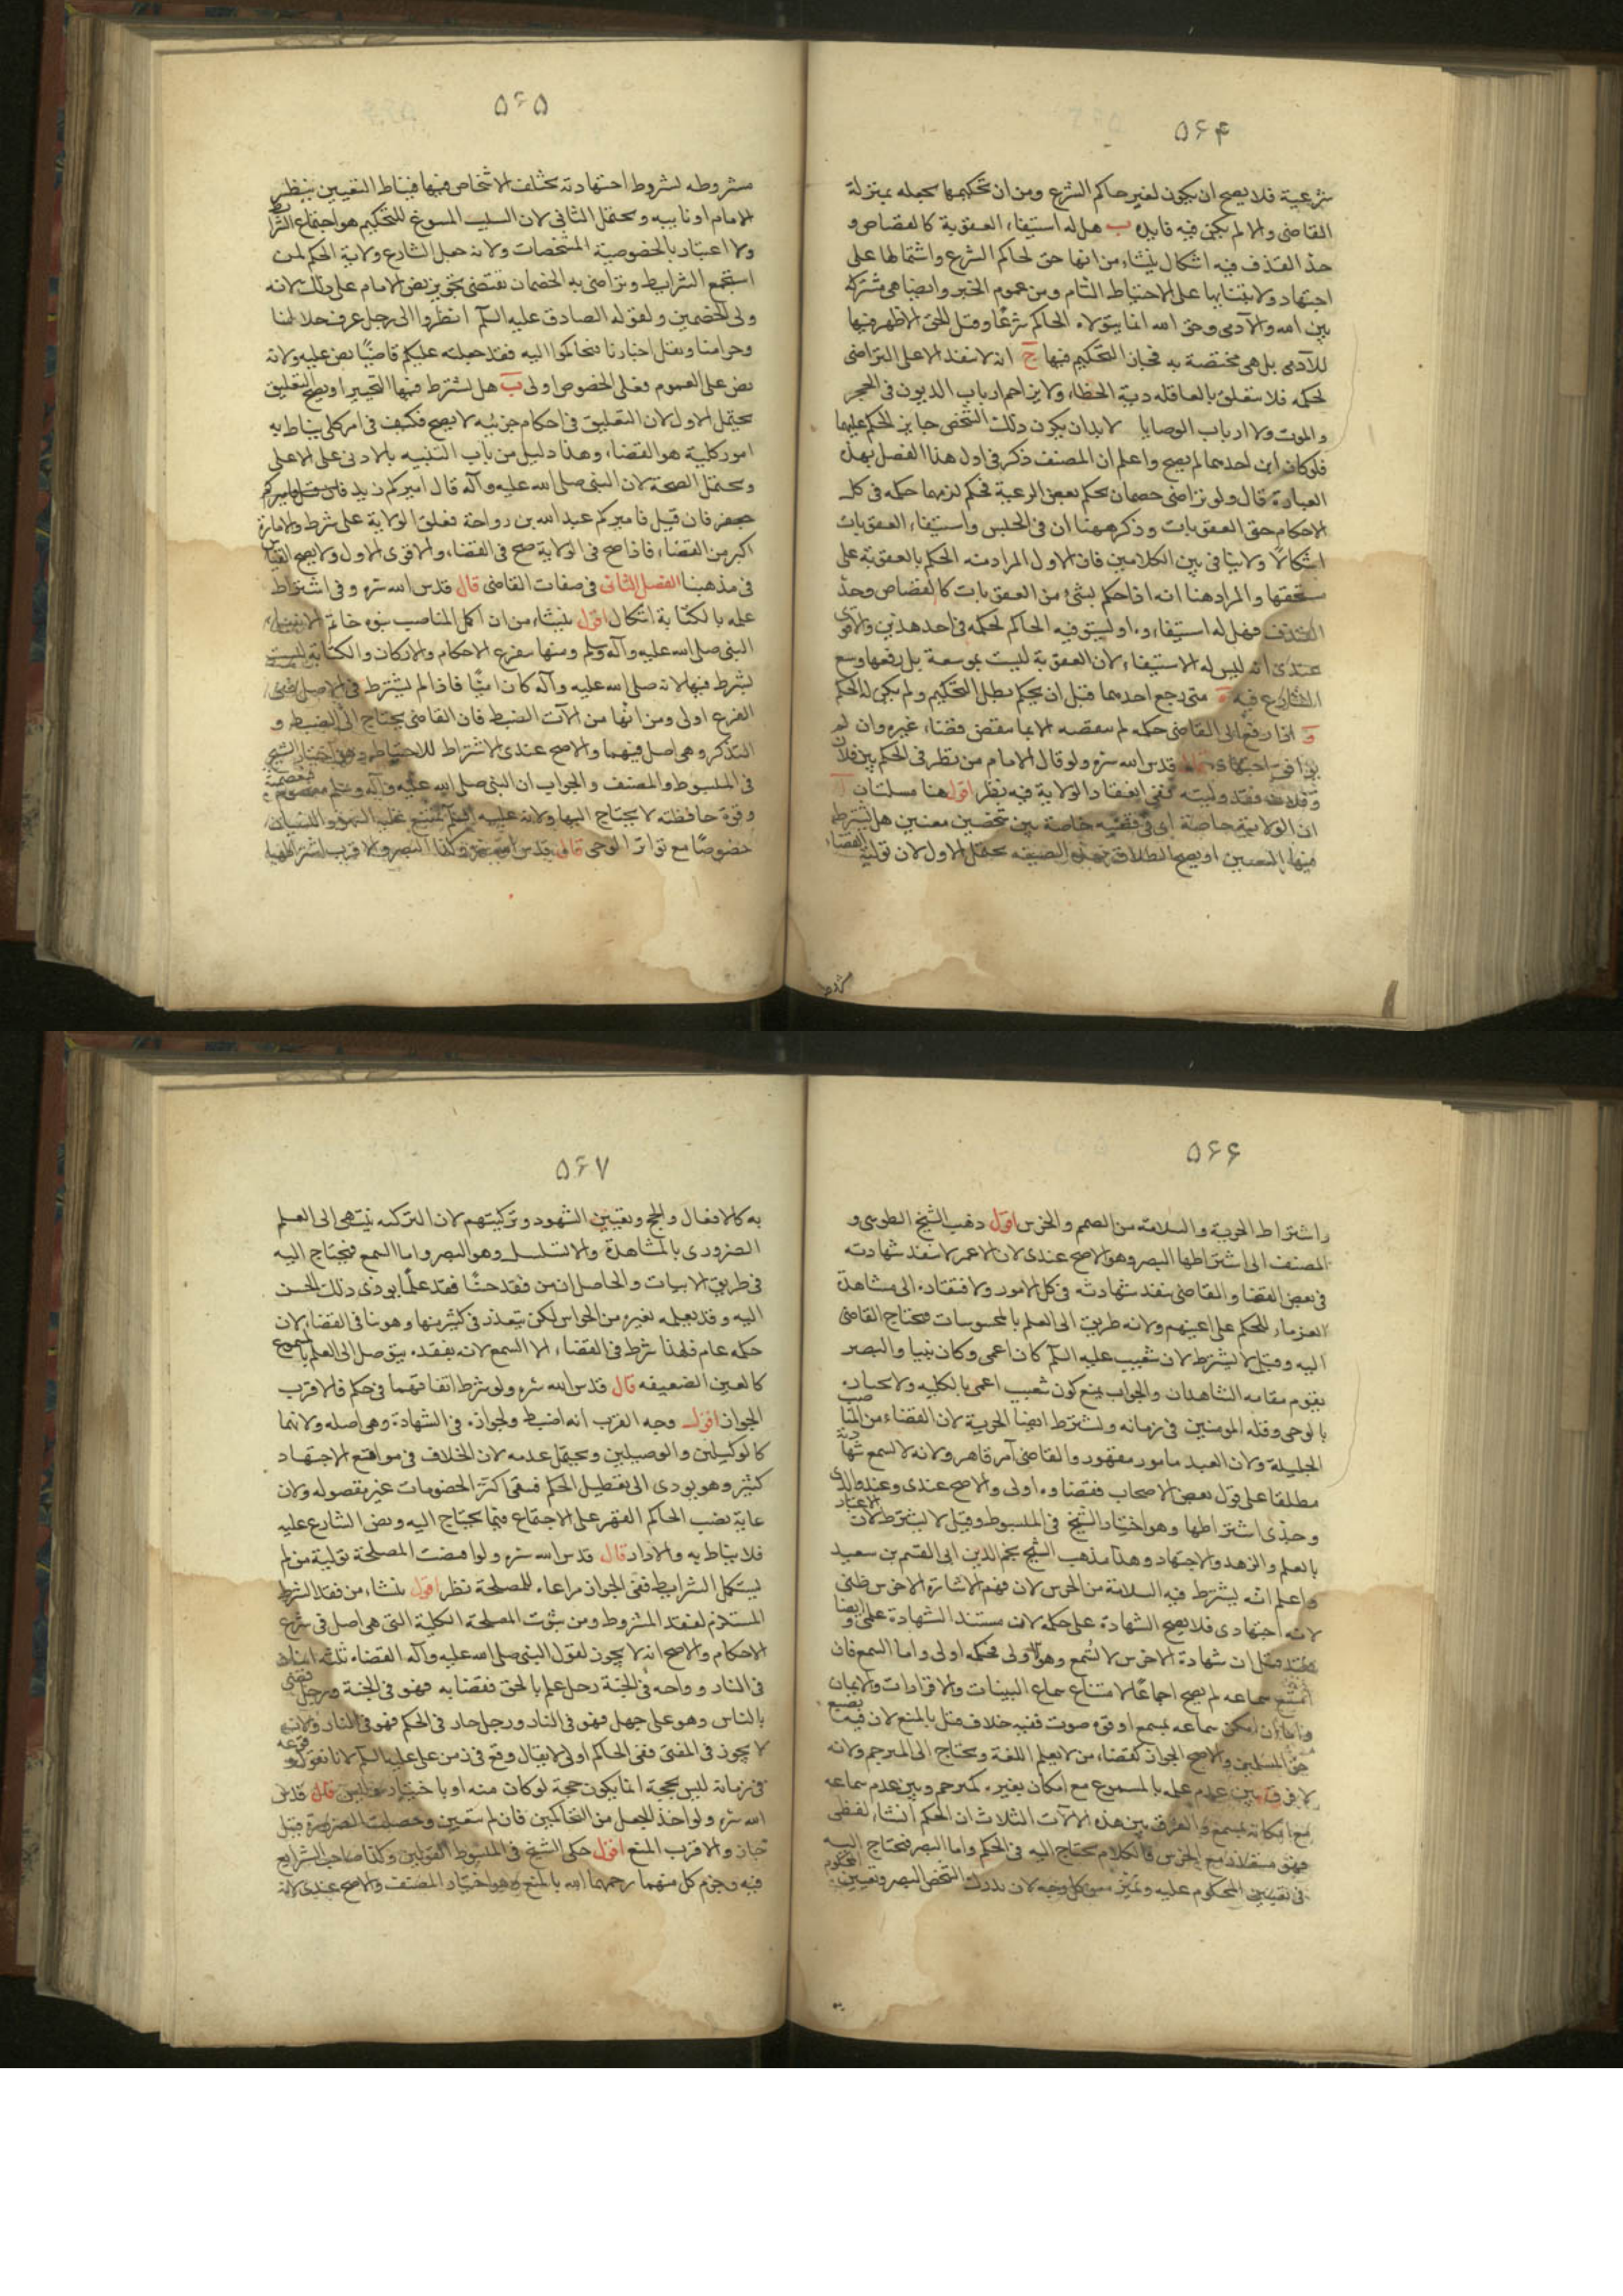 ۵۶۴
شرعية فلا يصح ان يكون لغير حاكم الشرع ومن ان تحكيمهما يجعله بمنزلة
القاضى والا لم يكن فيه فايدة ب هل له استيفاء العقوبة كالقصاص و
حد القذف فيه اشكال ينشاء من انها حق لحاكم الشرع واشتمالها على
اجتهاد ولابتنايها على الاحتياط التام ومن عموم الخبر وايضا هى مشتركة
بين الله والآدمى وحق الله انما يتولاه الحاكم شرعًا وقيل للحق الاظهر فيها
للآدمى بل هى مختصة به فجاز التحكيم فيها ج انه لا ينفذ الا على التراضى
لحكمه فلا يتعلق بالعاقلة دية الخطاء ولا يزاحم ارباب الديون فى الحجر
والموت ولا ارباب الوصايا لا بد ان يكون ذلك الشخص جايز الحكم عليهما
فلو كان ابن احدهما لم يصح واعلم ان المصنف ذكر فى اول هذا الفصل بهذه
العبارة قال ولو تراضى خصمان بحكم بعض الرعية فحكم لزمهما حكمه فى كل
الاحكام حتى العقوبات وذكر ههنا ان فى الحبس واستيفاء العقوبات
اشكالًا ولا ينافى بين الكلامين فان الاول المراد منه الحكم بالعقوبة على
مستحقها والمراد هنا انه اذا حكم بشئ من العقوبات كالقصاص وحد
القذف فهل له استيفاءه او يستوفيه الحاكم لحكمه فى احد هذين والاقوى
عندى انه ليس له الاستيفاء لان العقوبة ليست بموسعة بل رفعها وسع
الشارع فيه ه متى رجع احدهما قبل ان يحكم بطل التحكيم ولم يكن له الحكم
و اذا رفع الى القاضى حكمه لم ينقضه الا بما ينقض قضاء غيره وان لم
يوافق اجتهاده قال قدس الله سره ولو قال الامام من نظر فى الحكم بين فلان
وفلان فقد وليته ففى انعقاد الولاية فيه نظر اقول هنا مسلتان آ
ان الولاية خاصة اى فى قضية خاصة بين شخصين معنيين هل يشترط
فيها التعيين او يصح انطلاق بهذه الصيغه يحتمل الاول لان تولية القضاء
۵۶۵
مشروطه بشروط اجتهادية تختلف الاشخاص فيها فيناط التعيين بنظر
الامام او نايبه ويحتمل الثانى لان السبب المسوغ للتحكيم هو اجتماع الشرايط
ولا اعتبار بالخصوصية المشخصات ولانه جعل الشارع ولاية الحكم لمن
استجمع الشرايط وتراضى به الخصمان يقتضى تجويز نص الامام على ذلك لانه
ولى الخصمين ولقوله الصادق عليه السلم انظروا الى رجل عرف حلالنا
وحرامنا ونقل اخبارنا فتحاكموا اليه فقد جعلته عليكم قاضيًا نص عليه ولانه
نص على العموم فعلى الخصوص اولى ب هل يشترط فيها التخيير او يصح التعليق
يحتمل الاول لان التعليق فى احكام جزئية لا يصح فكيف فى امر كلى يناط به
امور كلية هو القضاء وهذا دليل من باب التنبيه بالادنى على الاعلى
ويحتمل الصحة لان النبى صلى الله عليه وآله قال اميركم زيد فان قتل فاميركم
جعفر فان قتل فاميركم عبد الله بن رواحة فعلق الولاية على شرط والامارة
اكبر من القضاء فاذا صح فى الولاية صح فى القضاء والاقوى الاول ولا يصح القياس
فى مذهبنا الفصل الثانى فى صفات القاضى قال قدس الله سره وفى اشتراط
علمه بالكتابة اشكال اقول ينشاء من ان اكل المناصب نبوه خاتم الانبياء
النبى صلى الله عليه وآله وسلم ومنها تفرع الاحكام والاركان والكتابة ليست
بشرط فيها لانه صلى الله عليه وآله كان اميًا فاذا لم يشترط فى الاصل ففى
الفرع اولى ومن انها من الآت الضبط فان القاضى يحتاج الى الضبط و
التذكر وهى اصل فيهما والاصح عندى الاشتراط للاحتياط وهو اختيار الشيخ
فى المبسوط والمصنف والجواب ان النبى صلى الله عليه وآله وسلم معصوم
وقوة حافظته لا يحتاج اليها ولانه عليه السلم يمتنع عليه السهو والنسيان
خصوصًا مع تواتر الوحى قال قدس الله سره وكذا البصر والاقرب اشتراطهما
۵۶۶
واشتراط الحرية والسلامة من الصمم والخرس اقول ذهب الشيخ الطوسى و
المصنف الى اشتراطها البصر وهو الاصح عندى لان الاعمى لا ينفذ شهادته
فى بعض القضا والقاضى ينفذ شهادته فى كل الامور ولافتقاره الى مشاهدة
الغرماء للحكم على اعينهم ولانه طريق الى العلم بالمحسوسات فيحتاج القاضى
اليه وقيل لا يشترط لان شعيب عليه السلم كان اعمى وكان نبيا والبصر
يقوم مقامه الشاهدان والجواب بمنع كون شعيب اعمى بالكليه ولانجباره
بالوحى وقلة المومنين فى زمانه ويشترط ايضا الحرية لان القضاء من المناصب
الجليلة ولان العبد مامور مقهور والقاضى آمر قاهر ولانه لا يسمع شهادته
مطلقا على قول بعض الاصحاب فقضاوه اولى والاصح عندى وعند والدى
وجدى اشتراطها وهو اختيار الشيخ فى المبسوط وقيل لا يشترط لان الاعتبار
بالعلم والزهد والاجتهاد وهذا مذهب الشيخ نجم الدين ابى القسم بن سعيد
واعلم انه يشترط فيه السلامة من الخرس لان فهم الاشارة الاخرس ظنى
لانه اجتهادى فلا يصح الشهادة على حكمه لان مستند الشهادة علمى وايضا
فقد قيل ان شهادة الاخرس لا تسمع وهو اولى فحكمه اولى واما السمع فان
امتنع سماعه لم يصح اجماعًا لامتناع سماع البينات والاقرارات والايمان
واما ان امكن سماعه بمسمع او قوة صوت ففيه خلاف قيل بالمنع لان فيه تضييع
حق المسلمين والاصح الجواز كقضاء من لا يعلم اللغة ويحتاج الى المترجم ولانه
لا فرق بين عدم علمه بالمسموع مع امكان بغيره كمترجم وبين عدم سماعه
مع امكانه بمسمع والفرق بين هذه الآلات الثلاث ان الحكم انشاء لفظى
فهو مستفاد مع الخرس فالكلام يحتاج اليه فى الحكم واما البصر فيحتاج اليه
فى تعيين المحكوم عليه وتميزه من كل وجه لان يدرك الشخص البصر وتعيين المحكوم
۵۶۷
به كالافعال والحج وتعيين الشهود وتزكيتهم لان التزكيه ينتهى الى العلم
الضرورى بالمشاهدة والا تسلسل وهو البصر واما السمع فيحتاج اليه
فى طريق الاثبات والحاصل ان من فقد حسًا فقد علمًا يودى ذلك الحس
اليه وقد يعلمه بغيره من الحواس لكن يتعذر فى كثير منها وهو ينافى القضاء لان
حكمه عام فلهذا شرط فى القضاء الا السمع لانه بفقده يتوصل الى العلم بالمسموع
كالعين الضعيفه قال قدس الله سره ولو شرط اتفاقهما فى حكم فالاقرب
الجواز اقول وجه القرب انه اضبط ولجوازه فى الشهادة وهى اصله ولانهما
كالوكيلين والوصيين ويحتمل عدمه لان الخلاف فى مواقع الاجتهاد
كثير وهو يودى الى تعطيل الحكم فبقى اكثر الخصومات غير مفصوله ولان
غاية نصب الحاكم القهر على الاجتماع فيما يحتاج اليه ونص الشارع عليه
فلا يناط به والا دار قال قدس الله سره ولو اقتضت المصلحة تولية من لم
يستكمل الشرايط ففى الجواز مراعاة للمصلحة نظر اقول ينشاء من فقد الشرط
المستلزم لفقد المشروط ومن ثبوت المصلحة الكلية التى هى اصل فى شرع
الاحكام والاصح انه لا يجوز لقول النبى صلى الله عليه وآله القضاء ثلثة اثنان
فى النار وواحد فى الجنة رجل علم بالحق فقضا به فهو فى الجنة ورجل قضى
بالناس وهو على جهل فهو فى النار ورجل جار فى الحكم فهو فى النار ولانه
لا يجوز فى المفتى ففى الحاكم اولى لا يقال وقع فى زمن على عليه السلم لانا نقول وقوعه
فى زمانه ليس بحجة انما يكون حجة لو كان منه او باختياره وليس قال قدس
الله سره ولو اخذ الجعل من التحاكمين فان لم يتعين وحصلت الضرورة قيل
جاز والاقرب المنع اقول حكى الشيخ فى المبسوط القولين وكذا صاحب الشرايع
فيه وجزم كل منهما رحمهما الله بالمنع وهو اختيار المصنف والاصح عندى لانه